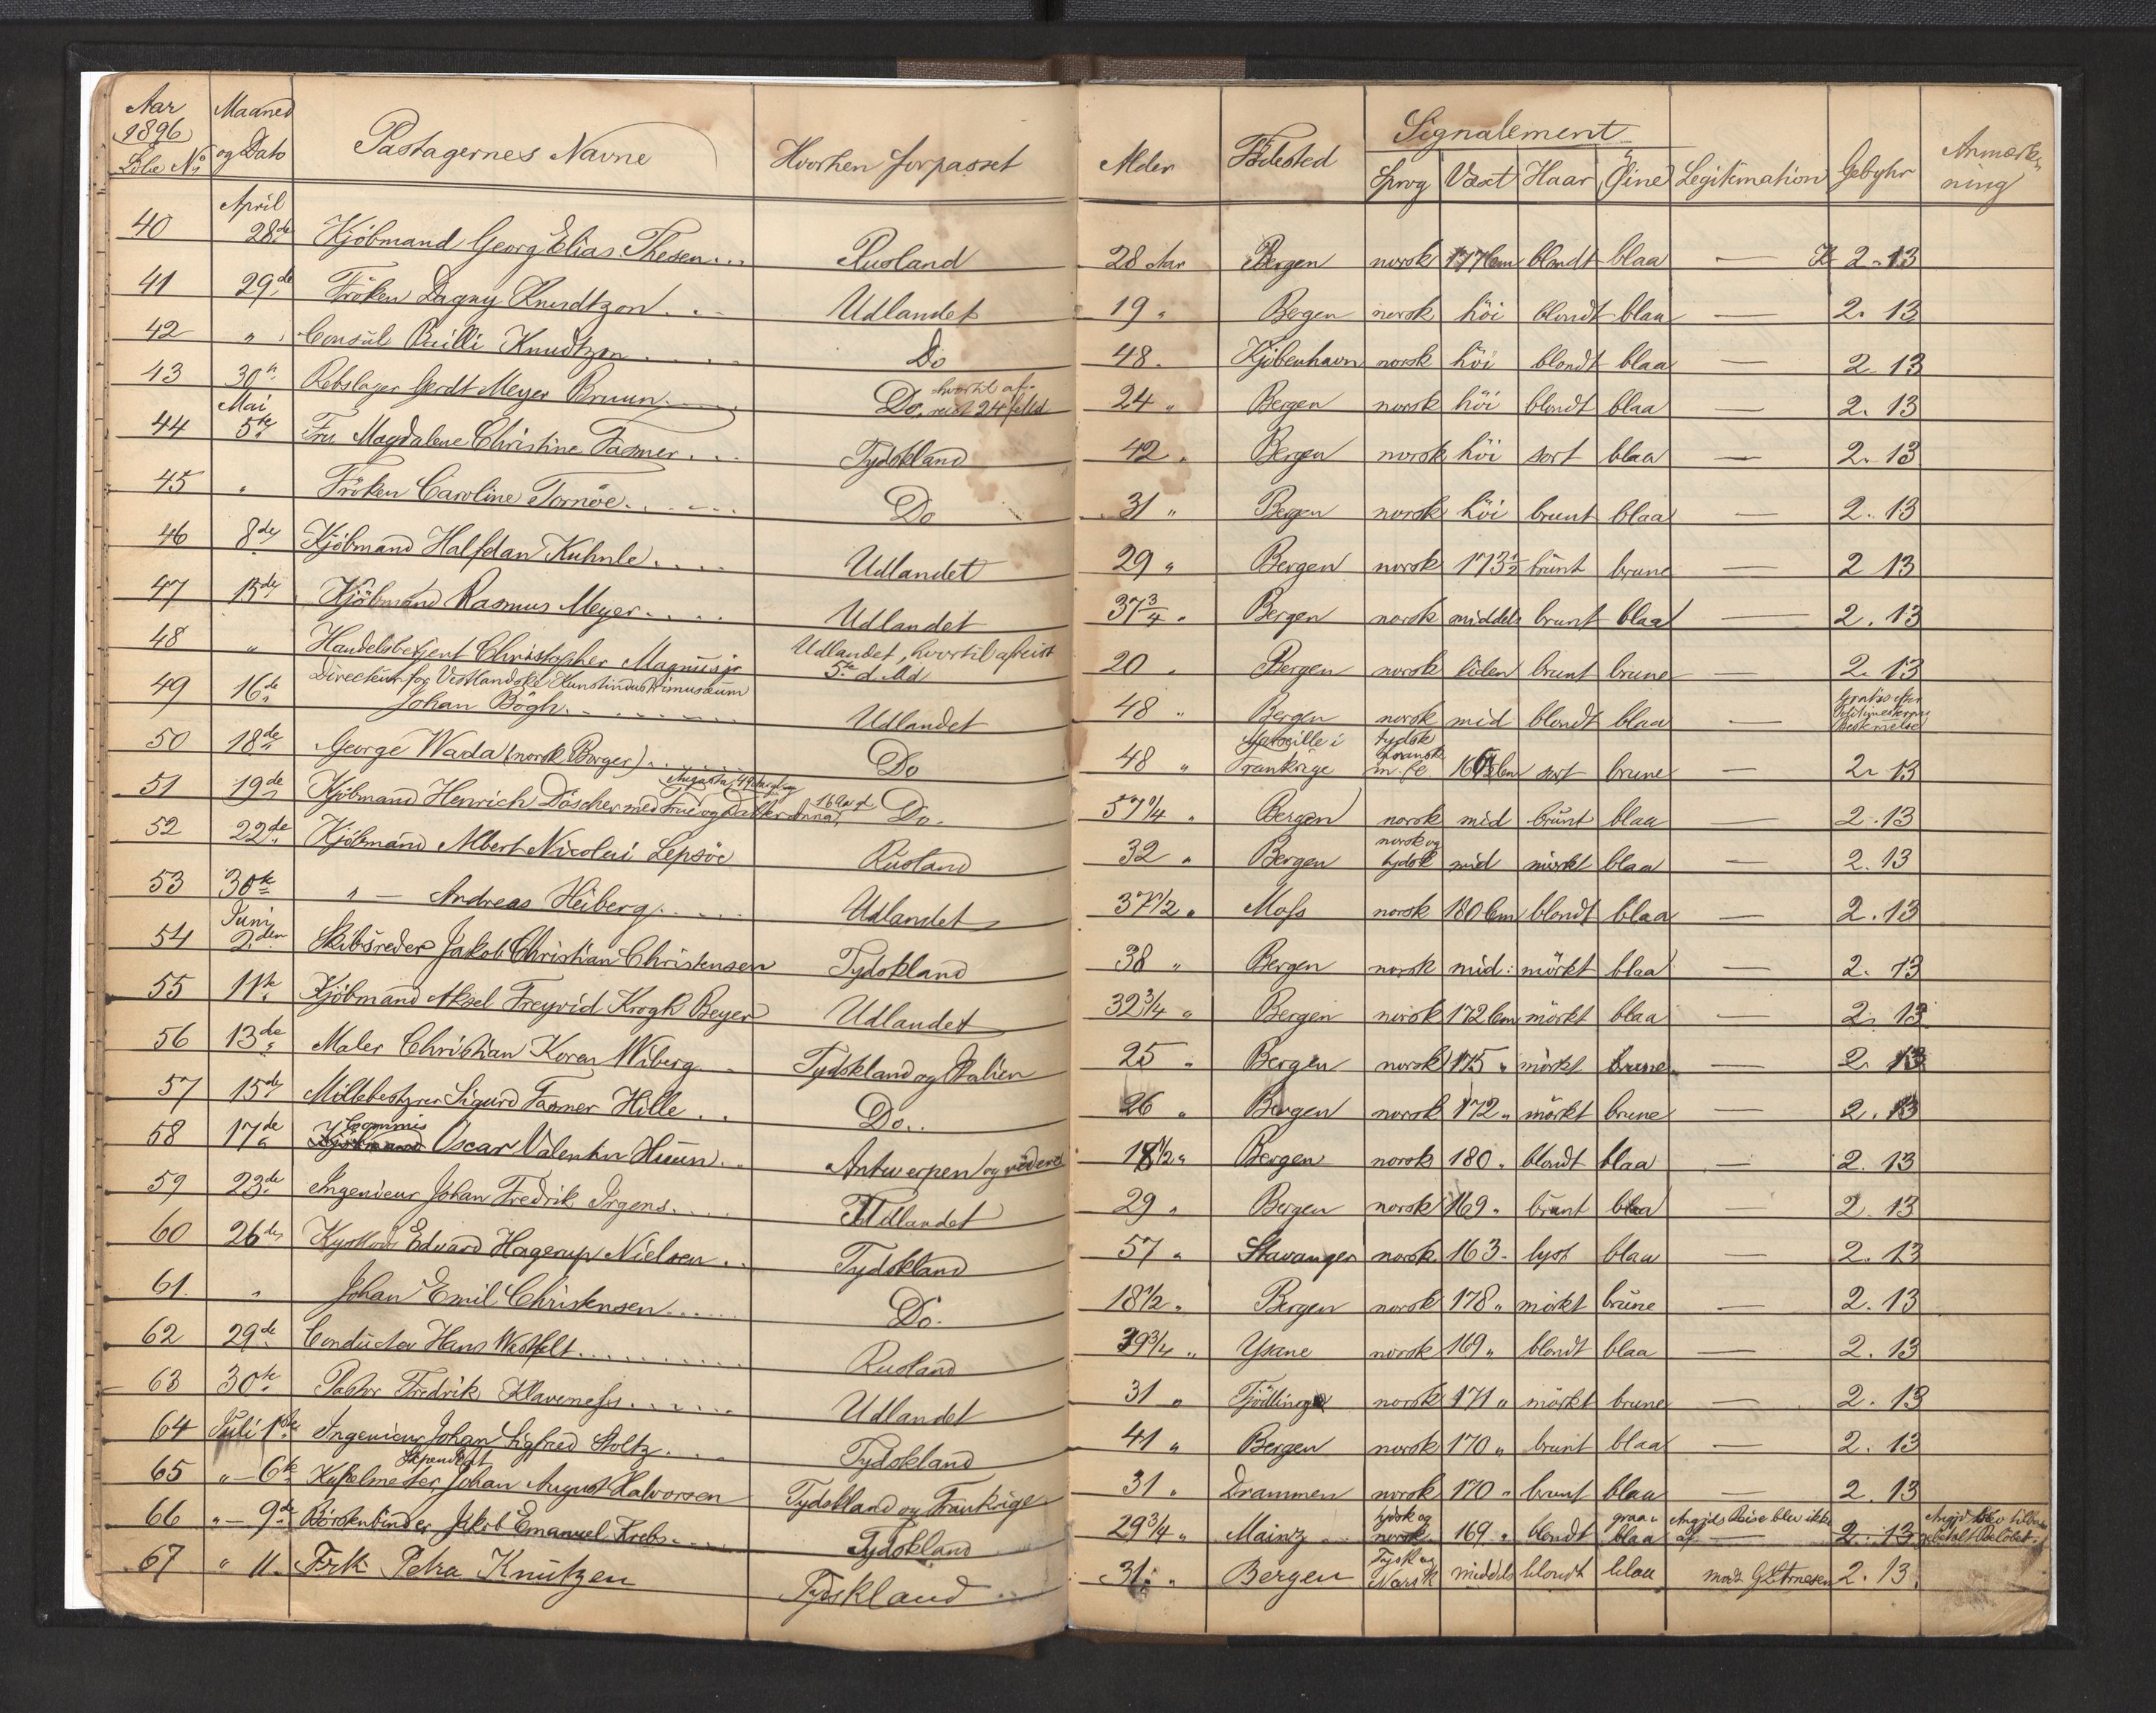 Aar 1896 Löbe No Maaned og Dato Passagernes Navne Hvorhen forpasset Alder Födested Signalement Sprog Vext Haar Öine Legitimation Gebyhr Anmærkning
April
40 28de Kjöbmand Georg Elias Thesen... Rusland 28 Aar Bergen norsk 177 Cm blondt blaa — K 2.13
41 29de Fröken Dagny Knudtzon... Udlandet 19 " Bergen norsk höi blondt blaa — 2.13
42 " Consul Knudtzon.... Do 48. Kjöbenhavn norsk höi blondt blaa — 2.13
43 30te Rebslager Gerdt Meyer Bruun... Do, hvortil afreist 24 24 " Bergen norsk höi blondt blaa — 2.13
Mai
44 5te Fru Magdalene Christine Fasmer... Tydskland 42 " Bergen norsk höi sort blaa — 2.13
45 " Fröken Caroline Tornöe...... Do 31 " Bergen norsk höi brunt blaa — 2.13
46 8de Kjöbmand Halfdan Kuhnle.... Udlandet 29 " Bergen norsk 173½ brunt brune — 2 13
47 15de Kjöbmand Rasmus Meyer.... Udlandet 37¾ " Bergen norsk middels brunt blaa — 2.13
48 " Handelsbetjent Christopher Magnus jr Udlandet, hvortil afreist 5te d. Md 20 " Bergen norsk liden brunt brune — 2.13
49 16de Directeur for Vestlandske Kunstindustrimuseum
Johan Bögh....... Udlandet 48 " Bergen norsk mid blondt blaa — Gratis efter Politimesterens Beskemelse
50 18de George Wada (norsk Borger)...... Do 48 " Marseille i Frankrige tydsk fransk m. fl. 168 Cm sort brune — 2.13
51 19de Kjöbmand Henrich Döscher med Frue Augusta, 49 Aar gl og Datter Anna, 16 Aar gl Do. 57¼ " Bergen norsk mid brunt blaa — 2.13
52 22de Kjöbmand Albert Nicolai Lepsöe Rusland 32 " Bergen norsk og tydsk mid mörkt blaa — 2.13
53 30te " — Andreas Heiberg..... Udlandet 37½ " Moss norsk 180 Cm blondt blaa — 2.13
Juni
54 2den Skibsreder Jakob Christian Christensen Tydskland 38 " Bergen norsk mid: mörkt blaa — 2.13
55 11te Kjöbmand Aksel Freyvid Krogh Beyer Udlandet 32¾ " Bergen norsk 172 Cm mörkt blaa — 2.13
56 13de Maler Christian Koren Wiberg Tydskland og Italien 25 " Bergen norsk 175 " mörkt brune — 2.13
57 15de Möllebestyrer Sigurd Fasmer Hille.. Do.. 26 " Bergen norsk 172 " mörkt brune — 2.13
58 17de Kjöbmand Commis Oscar Valentin Huun.. Antwerpen og videre 18½ " Bergen norsk 180 " blondt blaa — 2.13
59 23de Ingenieur Johan Fredrik Irgens.... Udlandet 29 " Bergen norsk 169 " brunt blaa — 2.13
60 26de Edvard Hagerup Nielsen.. Tydskland 57 " Stavanger norsk 163 " lyst blaa — 2.13
61. " Johan Emil Christensen..... Do. 18½ " Bergen norsk 178 " mörkt brune — 2.13
62 29de Conducteur Hans Westfelt.......... Rusland 39¾ " Ysane norsk 169 " blondt blaa — 2.13
63 30te Pastor Fredrik Klaveness...... Udlandet 31 " Tjödling norsk 171 " mörkt brune — 2.13
64 Juli 1ste Ingenieur Johan Sigfred Stoltz... Tydskland 41 " Bergen norsk 170 " brunt blaa — 2.13
65 " — 6te Kapelmester Stipendiat Johan August Halvorsen Tydskland og Frankrige 31 " Drammen norsk 170 " brunt blaa — 2.13
66 " — 9de Börstenbinder Jakob Emanuel Krebs.... Tydskland 29¾ " Mainz tydsk og norsk 169 " blondt graa blaa Angivne Reise blev ikke af. 2.13 blev tilbagebetalt Beløbet.
67 " 11. Frk Petra Knutzen Tydskland 31. " Bergen Tysk og Norsk middels blondt blaa 2.13.